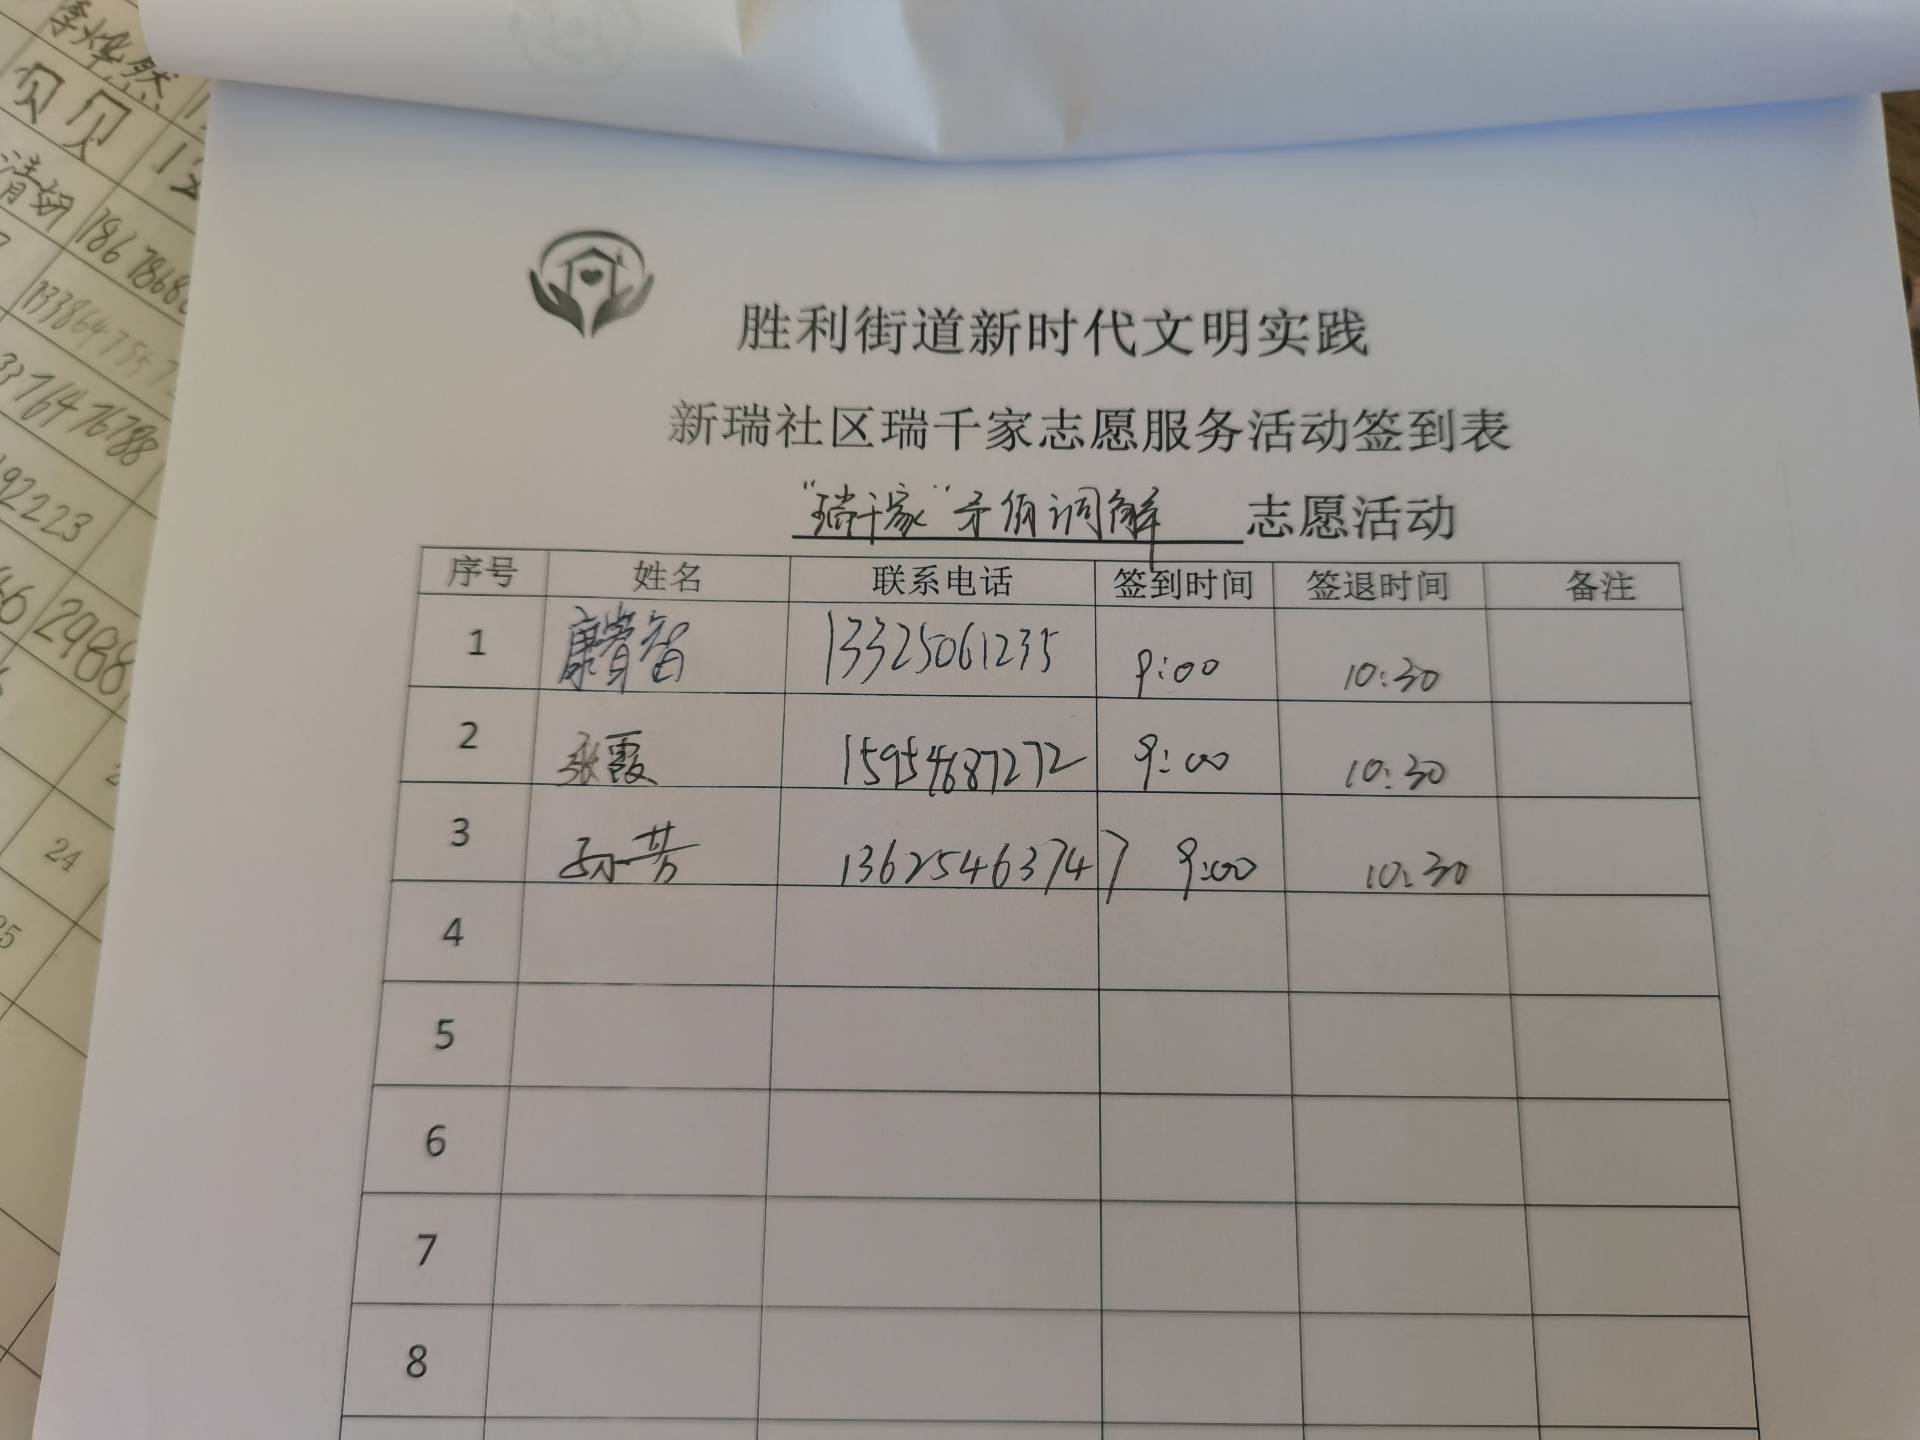 李烨然
贝贝
清妍 1867868
1338647557
33764 76788
92223
66 2988
24
胜利街道新时代文明实践
新瑞社区瑞千家志愿服务活动签到表
"瑞千家"矛盾调解 志愿活动
序号 姓名 联系电话 签到时间 签退时间 备注
1 康 智 13325061235 9:00 10:30
2 张霞 15954687272 9:00 10:30
3 孙芳 13625463747 9:00 10:30
4
5
6
7
8